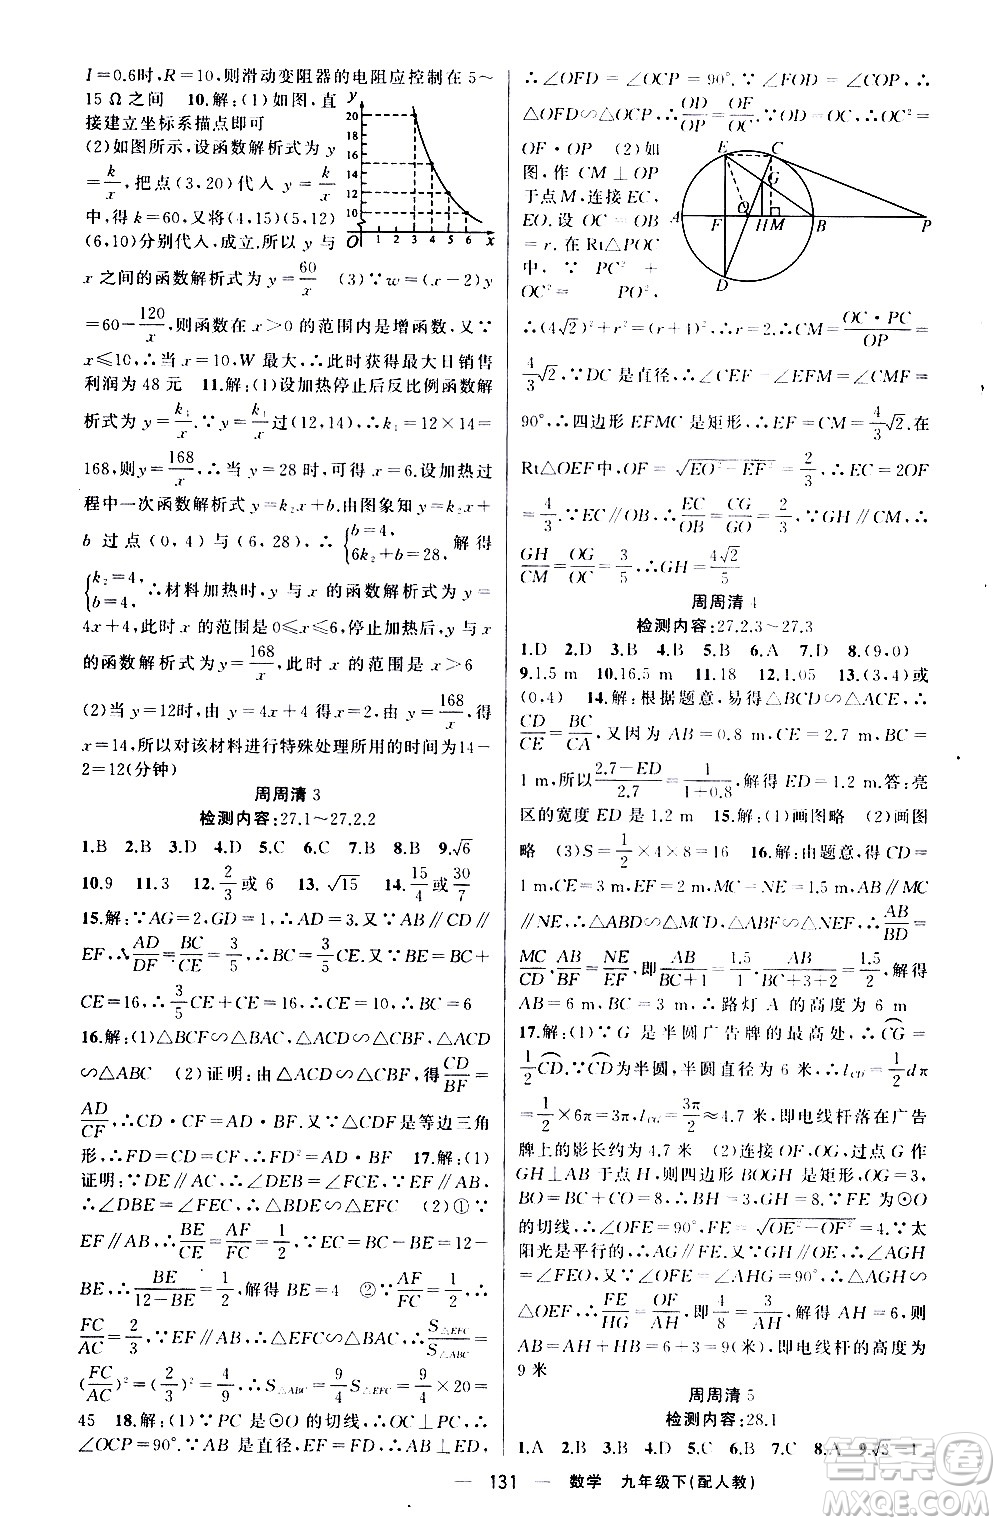 I=0.6时,R=10,则滑动变阻器的电阻应控制在5～
15 Ω之间　10.解:(1)如图,直
接建立坐标系描点即可
(2)如图所示,设函数解析式为 y
=k/x,把点(3,20)代入 y=k/x
中,得 k=60,又将(4,15)(5,12)
(6,10)分别代入,成立.所以 y 与
x 之间的函数解析式为 y=60/x　(3)∵w=(x-2)y
=60-120/x,则函数在 x>0 的范围内是增函数,又∵
x≤10,∴当 x=10,W 最大,∴此时获得最大日销售
利润为 48 元　11.解:(1)设加热停止后反比例函数解
析式为 y=k₁/x.∵y=k₁/x过(12,14),∴k₁=12×14=
168,则 y=168/x,∴当 y=28 时,可得 x=6.设加热过
程中一次函数解析式 y=k₂x+b.由图象知 y=k₂x+
b 过点(0,4)与(6,28),∴{b=4, 6k₂+b=28, 解得
{k₂=4, b=4, ∴材料加热时,y 与 x 的函数解析式为 y=
4x+4,此时 x 的范围是 0≤x≤6,停止加热时 y 与 x
的函数解析式为 y=168/x,此时 x 的范围是 x>6
(2)当 y=12时,可由 y=4x+4 得 x=2,由 y=168/x,得
x=14,所以对该材料进行特殊处理所用的时间为14-
2=12(分钟)
周周清 3
检测内容:27.1～27.2.2
1.B　2.B　3.D　4.D　5.C　6.C　7.B　8.B　9.√6
10.9　11.3　12.2/3或 6　13.√15　14.15/4或30/7
15.解:∵AG=2,GD=1,∴AD=3.又∵AB∥CD∥
EF,∴AD/DF=BC/CE=3/5,∴BC=3/5CE,又∵BC+
CE=16,∴3/5CE+CE=16,∴CE=10,∴BC=6
16.解:(1)△BCF∽△BAC,△CDF∽△CBF,△ACD
∽△ABC　(2)证明:由△ACD∽△CBF,得CD/BF=
AD/CF,∴CD·CF=AD·BF.又∵△CDF是等边三角
形,∴FD=CD=CF,∴FD²=AD·BF　17.解:(1)
证明:∵DE∥AC,∴∠DEB=∠FCE,∵EF∥AB,
∴∠DBE=∠FEC,∴△BDE∽△EFC　(2)①∵
EF∥AB,∴BE/CE=AF/FC=1/2,∵CE=BC-BE=12-
BE,∴BE/12-BE=1/2,解得 BE=4　②∵AF/FC=1/2,∴
FC/AC=2/3,∵EF∥AB,∴△EFC∽△BAC,∴S△EFC/S△ABC=
(FC/AC)²=(2/3)²=4/9,∴S△ABC=9/4S△EFC=9/4×20=
45　18.解:(1)∵PC 是⊙O 的切线,∴OC⊥PC,∴
∠OCP=90°.∵AB 是直径,EF=FD,∴AB⊥ED,
y
20
18
16
14
12
10
O 1 2 3 4 5 6 x
∴∠OFD=∠OCP=90°.∵∠FOD=∠COP,∴
△OFD∽△OCP,∴OD/OP=OF/OC.∵OD=OC,∴OC²=
OF·OP　(2)如
图,作 CM⊥OP
于点 M,连接 EC、
EO.设 OC=OB
=r.在 Rt△POC
中,∵ PC²+
OC²=PO²,
∴(4√2)²+r²=(r+4)²,∴r=2.∴CM=OC·PC/OP=
4/3√2.∵DC 是直径,∴∠CEF=∠EFM=∠CMF=
90°,∴四边形 EFMC 是矩形,∴EF=CM=4/3√2,在
Rt△OEF中,OF=√EO²-EF²=2/3,∴EC=2OF
=4/3.∵EC∥OB,∴EC/OB=CG/GO=2/3.∵GH∥CM,∴
GH/CM=OG/OC=3/5,∴GH=4√2/5
E C G A F O H M B P D
周周清 4
检测内容:27.2.3～27.3
1.D　2.D　3.D　4.B　5.B　6.C　7.D　8.(9,0)
9.1.5 m　10.16.5 m　11.18　12.1.05　13.(3,4)或
(0,4)　14.解:根据题意,易得△BCD∽△ACE,∴
CD/CE=BC/CA,又因为 AB=ED,CE=2.7 m,BC=
1 m,所以2.7-ED/2.7=1/1+0.8,解得 ED=1.2 m.答:亮
区的宽度 ED 是1.2 m　15.解:(1)画图略　(2)画图
略　(3)S=1/2×4×8=16　16.解:由题意,得 CD=
1 m,CE=3 m,EF=2 m,MC=NE=1.5 m,AB∥MC
∥NE,∴△ABD∽△MCD,△ABF∽△NEF,∴AB/BD=
MC/CD,AB/BF=NE/EF,即AB/BC+1=1.5/1,AB/BC+3+2=1.5/2,解得
AB=6 m,BC=3 m,∴路灯 A 的高度为 6 m
17.解:(1)∵G 是半圆广告牌的最高处,∴CG=
1/2CD.∵CD为半圆,且直径为 6 米,∴l CD=1/2dπ
=1/2×6π=3π,l CG=3π/2≈4.7 米,即电线杆落在广告
牌上的影长约为 4.7 米　(2)连接 OF,OG,过点 G 作
GH⊥AB 于点 H,则四边形 BOGH 是矩形,OG=3,
BO=BC+CO=8,∴BH=3,GH=8.∵FE 为⊙O
的切线,∴∠OFE=90°,FE=√OE²-OF²=4.∵太
阳光是平行的,∴AG∥OE,又∵GH∥OE,∴∠AGH
=∠FEO,又∵∠OFE=∠AHG=90°,∴△AGH∽
△OEF,∴FE/HG=OF/AH,即4/8=3/AH,解得 AH=6,则
AB=AH+BH=6+3=9(米),即电线杆的高度为
9 米
周周清 5
检测内容:28.1
1.A　2.B　3.A　4.D　5.D　6.D　7.C　8.A　9.√3-1
— 131 —　数学　九年级下(配人教)
答案圈
MXQE.COM